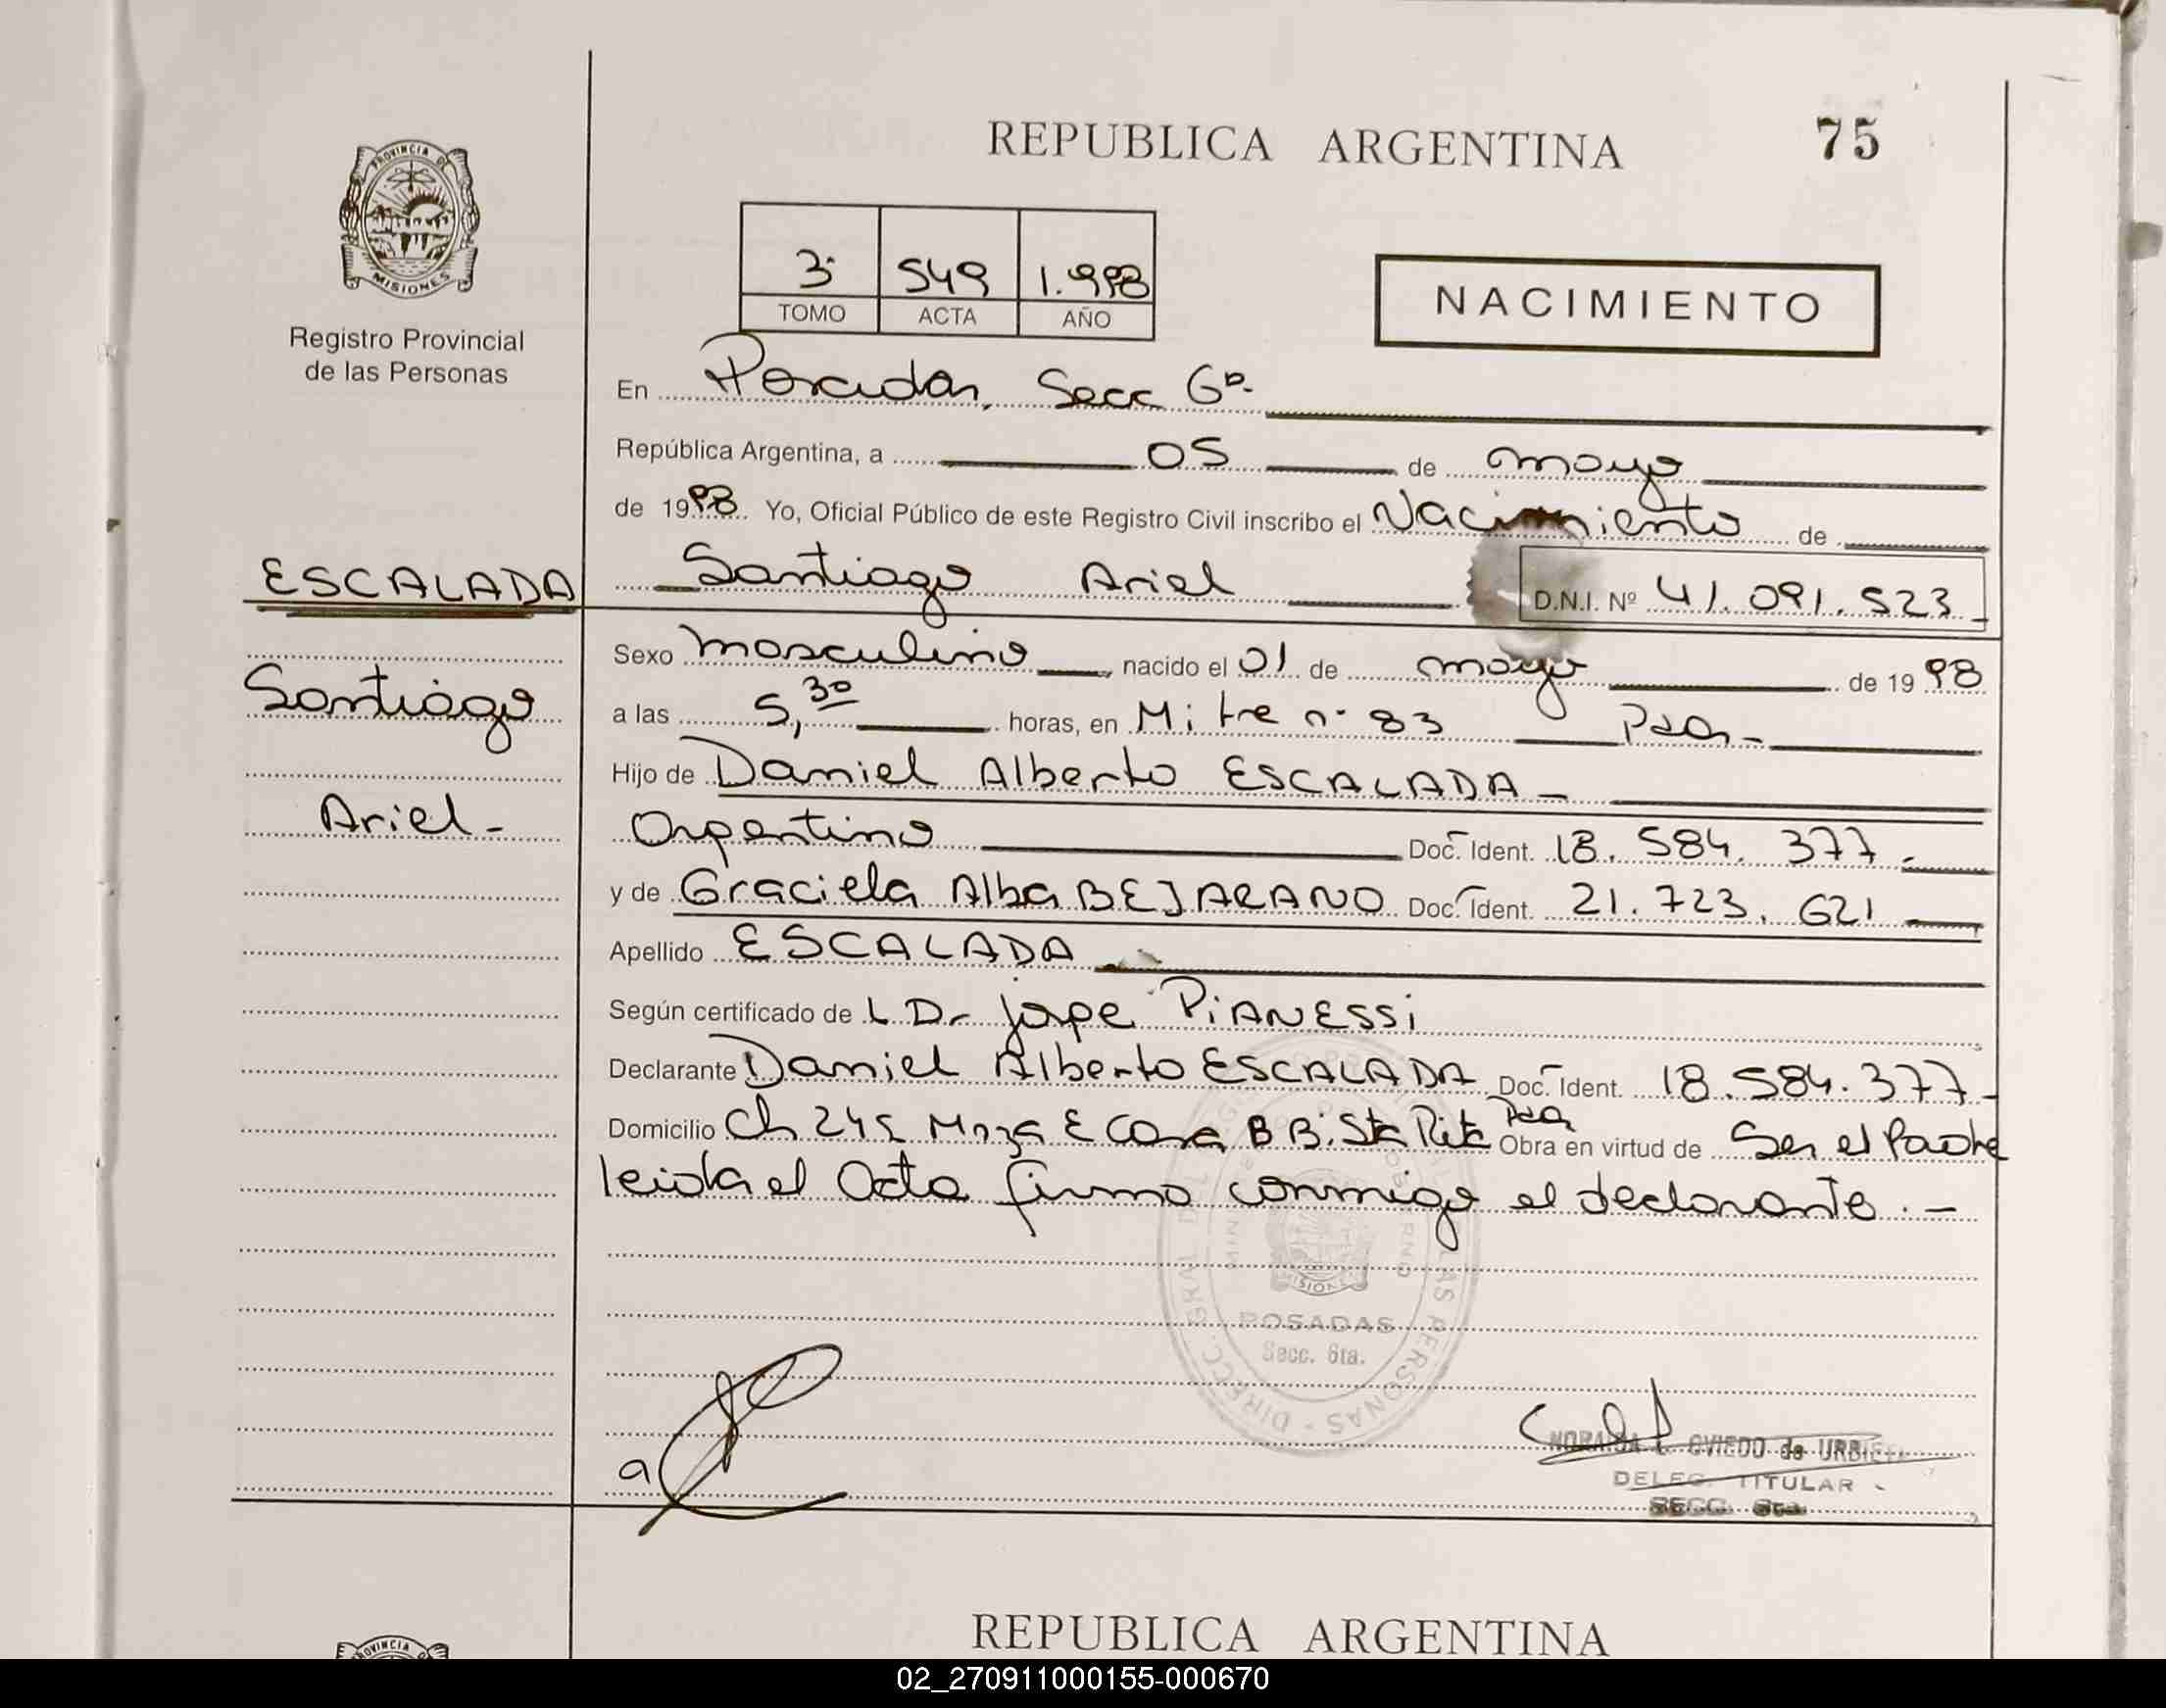 REPUBLICA ARGENTINA
75
PROVINCIA DE
MISIONES
Registro Provincial
de las Personas
3º 549 1.998
TOMO ACTA AÑO
NACIMIENTO
En Posadas, Secc 6ª
República Argentina, a 05 de mayo
de 1998 Yo, Oficial Público de este Registro Civil inscribo el Nacimiento de
ESCALADA
Santiago Ariel
D.N.I. Nº 41.091.523
Sexo masculino, nacido el 01 de mayo de 1998
Santiago
a las 5,30 horas, en Mitre nº 83 Pdas-
Hijo de Daniel Alberto ESCALADA -
Ariel-
Argentino Doc. Ident. 18.584.377-
y de Graciela Alba BEJARANO Doc. Ident. 21.723.621
Apellido ESCALADA
Según certificado de L Dr Jorge PiANESSi
Declarante Daniel Alberto ESCALADA Doc. Ident. 18.584.377-
Domicilio Ch 245 Mnza E Casa 8 B: Sta Rita Pdas Obra en virtud de Ser el Padre
leida el Acta firma conmigo el declarante.-
POSADAS
Secc. 6ta.
OVIEDO de URBIETA
DELEG. TITULAR
SECC. 6ta.
REPUBLICA ARGENTINA
PROVINCIA
02_270911000155-000670